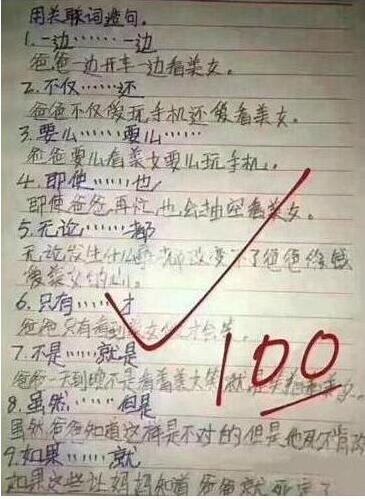 用关联词造句。
1.一边……一边
爸爸一边开车一边看美女。
2.不仅……还
爸爸不仅爱玩手机还爱看美女。
3.要么……要么……
爸爸要么看美女要么玩手机。
4.即使……也
即使爸爸再忙,也会抽空看美女。
5.无论……都
无论发生什么都改变不了爸爸
爱美女的心。
6.只有……才
爸爸只有看到美女才会笑。
7.不是……就是
爸爸一天到晚不是看着美女笑就
8.虽然……但是
虽然爸爸知道这样是不对的但是他
9.如果……就
如果这些让妈妈知道爸爸就死定了
100